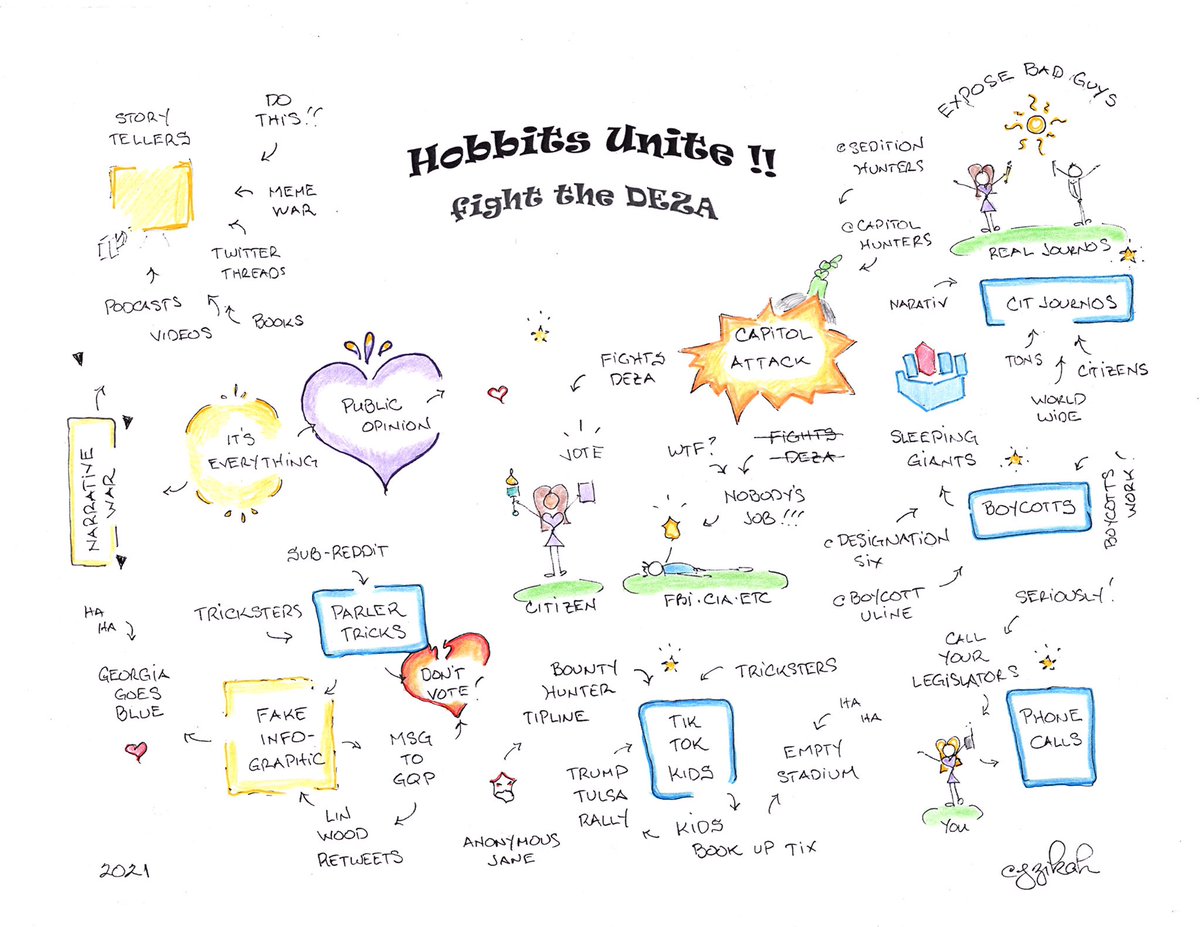 Hobbits Unite !!
fight the DEZA
STORY
TELLERS
DO
THIS!!
MEME
WAR
TWITTER
THREADS
PODCASTS
VIDEOS
BOOKS
NARRATIVE
WAR
IT'S
EVERYTHING
PUBLIC
OPINION
FIGHTS
DEZA
VOTE
CITIZEN
CAPITOL
ATTACK
@SEDITION
HUNTERS
@CAPITOL
HUNTERS
WTF?
FIGHTS
DEZA
NOBODY'S
JOB!!!
FBI·CIA·ETC
EXPOSE BAD GUYS
REAL JOURNOS
NARATIV
CIT JOURNOS
TONS
WORLD
WIDE
CITIZENS
SLEEPING
GIANTS
BOYCOTTS
BOYCOTTS
WORK!
@DESIGNATION
SIX
@BOYCOTT
ULINE
SERIOUSLY!
CALL
YOUR
LEGISLATORS
PHONE
CALLS
YOU
SUB-REDDIT
TRICKSTERS
PARLER
TRICKS
DON'T
VOTE!
HA
HA
GEORGIA
GOES
BLUE
FAKE
INFO-
GRAPHIC
MSG
TO
GQP
LIN
WOOD
RETWEETS
BOUNTY
HUNTER
TIPLINE
ANONYMOUS
JANE
TRICKSTERS
TIK
TOK
KIDS
HA
HA
EMPTY
STADIUM
TRUMP
TULSA
RALLY
KIDS
BOOK UP TIX
2021
cyzikah